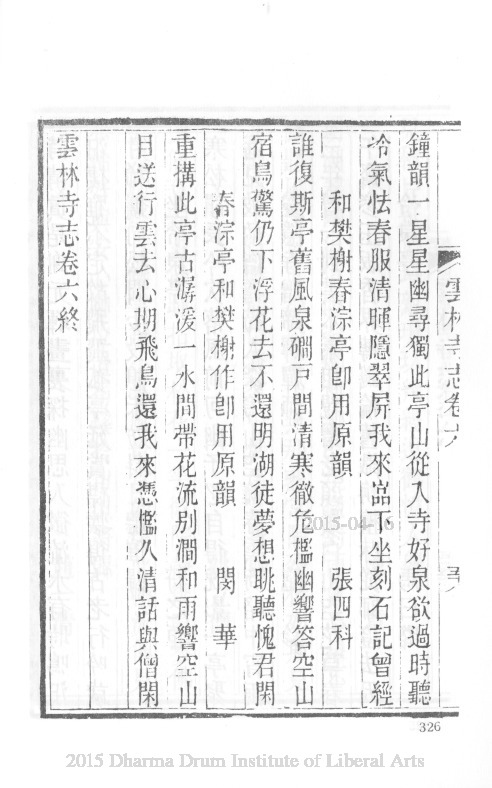 雲林寺志卷六
鐘韻一星星幽尋獨此亭山從入寺好泉欲過時聽
冷氣怯春服清暉隱翠屏我來嵓下坐刻石記曾經
和樊榭春淙亭卽用原韻 張四科
誰復斯亭舊風泉磵戸間清寒徹危檻幽響答空山
宿鳥驚仍下浮花去不還明湖徒夢想眺聽愧君閑
春淙亭和樊榭作卽用原韻 閔華
重搆此亭古潺湲一水間帶花流别澗和雨響空山
目送行雲去心期飛鳥還我來憑檻久清話與僧閑
雲林寺志卷六終
2015-04-16
326
2015 Dharma Drum Institute of Liberal Arts